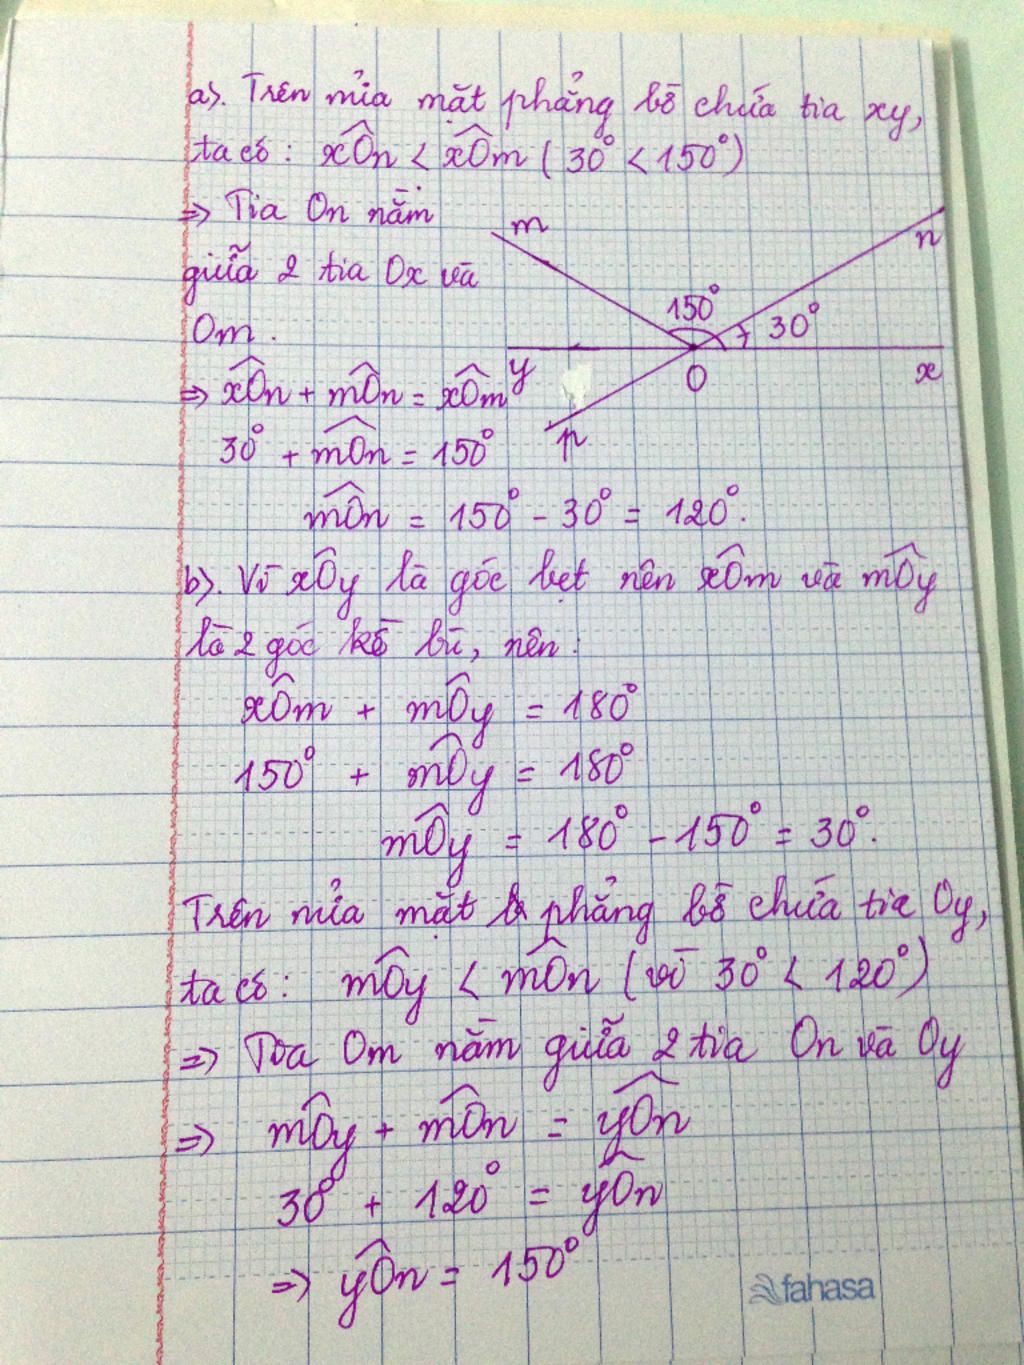 a). Trên nửa mặt phẳng bờ chứa tia xy,
ta có: xÔn < xÔm (30° < 150°)
=> Tia On nằm
giữa 2 tia Ox và
Om.
m
n
150°
30°
y
O
x
p
=> xÔn + mÔn = xÔm
30° + mÔn = 150°
mÔn = 150° - 30° = 120°.
b). Vì xÔy là góc bẹt nên xÔm và mÔy
là 2 góc kề bù, nên:
xÔm + mÔy = 180°
150° + mÔy = 180°
mÔy = 180° - 150° = 30°.
Trên nửa mặt phẳng bờ chứa tia Oy,
ta có: mÔy < mÔn (vì 30° < 120°)
=> Tia Om nằm giữa 2 tia On và Oy
=> mÔy + mÔn = yÔn
30° + 120° = yÔn
=> yÔn = 150°
fahasa